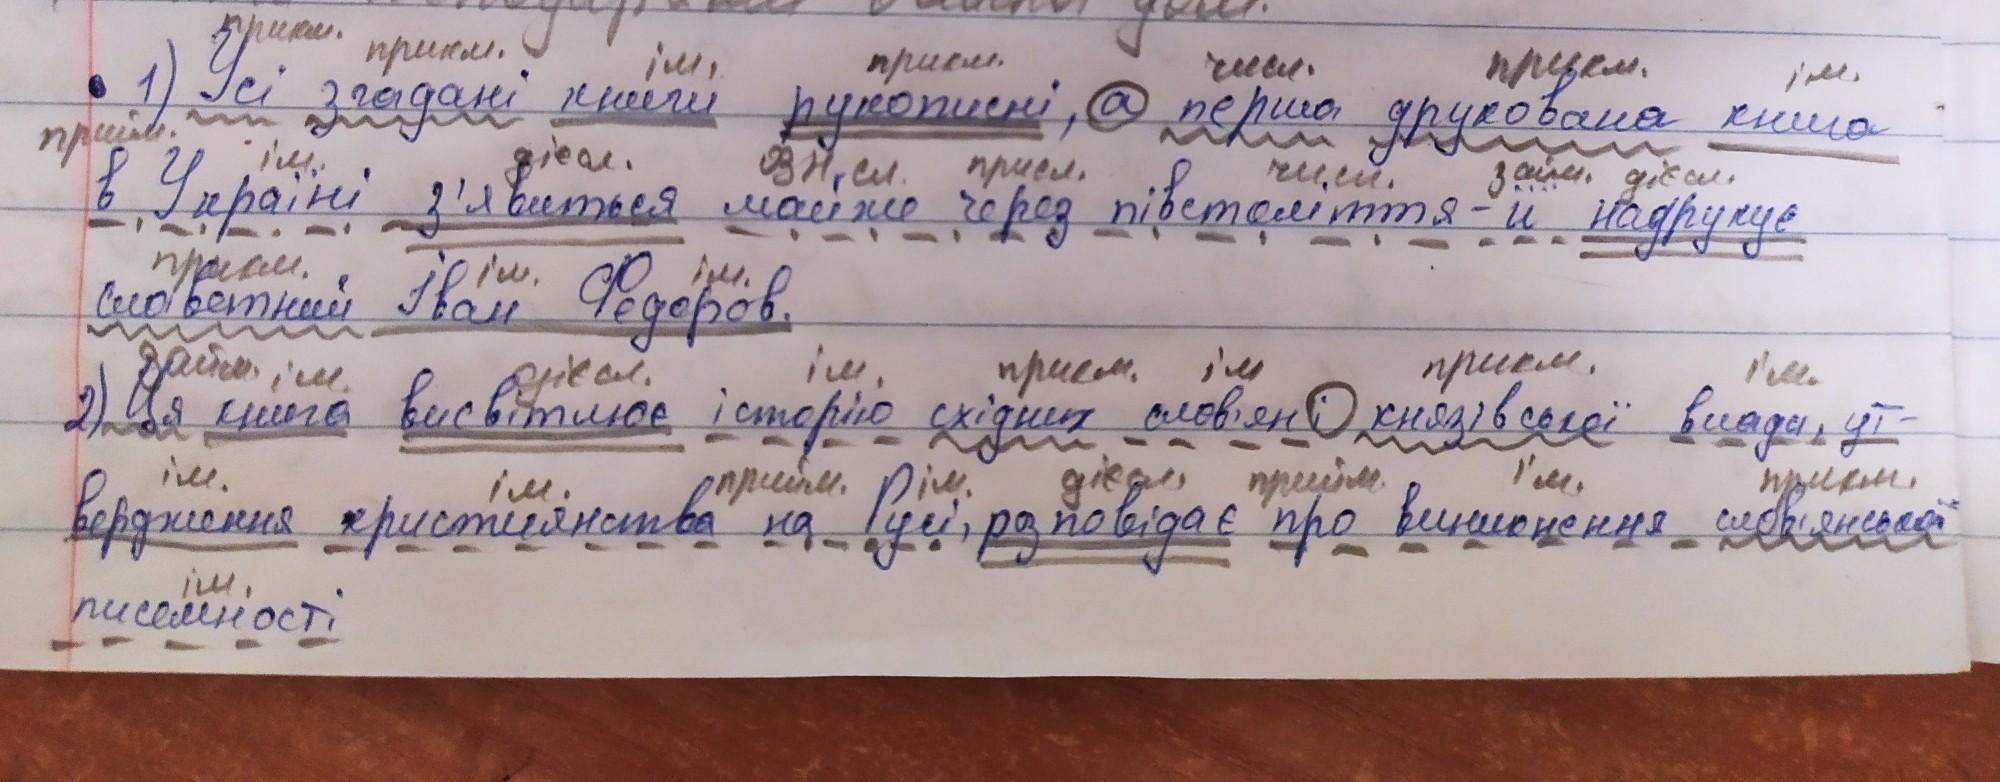 дом.
прикм. прикм. ім. прикм. числ. прикм. ім.
• 1) Усі згадані книги рукописні, а перша друкована книга
прийм. ім. дієсл. присл. числ. займ. дієсл.
в Україні з'явиться майже через півстоліття - її надрукує
прикм. ім. ім.
славетний Іван Федоров.
займ. ім. дієсл. ім. прикм. ім прикм. ім.
2) Ця книга висвітлює історію східних слов'ян і князівської влади, ут-
ім. ім. прийм. ім. дієсл. прийм. ім. прикм.
вердження християнства на Русі, розповідає про виникнення слов'янської
ім.
писемності